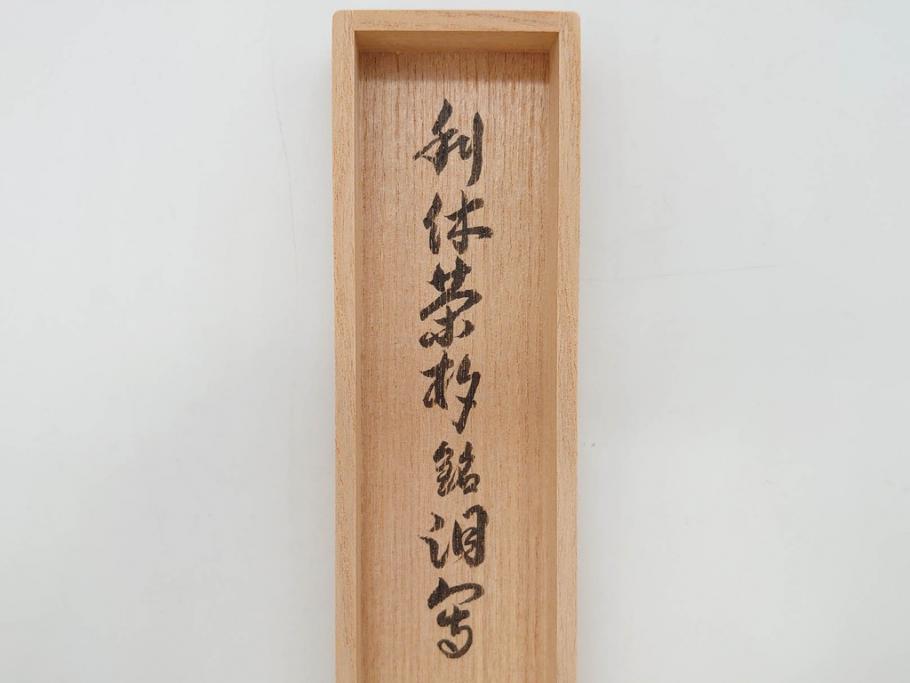 利休茶杓銘泪写